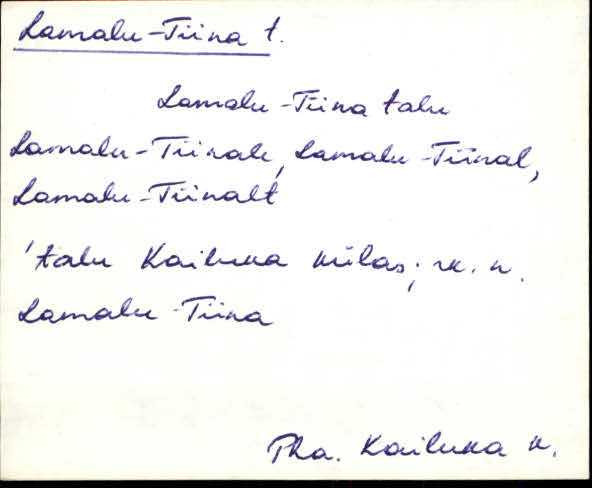 Lamalu-Tiina t.
Lamalu-Tiina talu
Lamalu-Tiinale, Lamalu-Tiinal,
Lamalu-Tiinalt
'talu Kailuka külas; rk. n.
Lamalu-Tiina
Pha. Kailuka k.